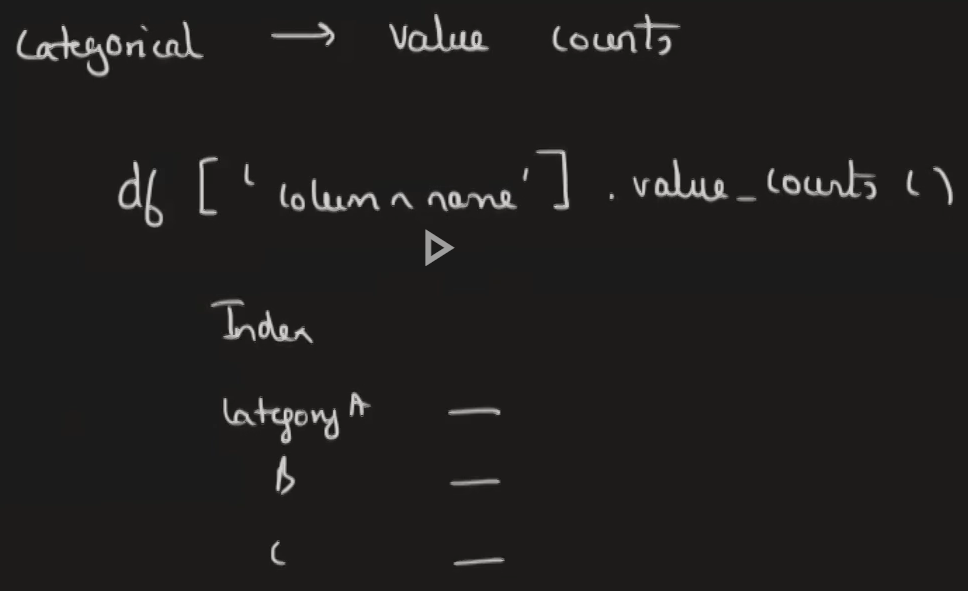 Categorical → value counts
df ['column name'] . value_counts ()
Index
Category A —
B —
C —